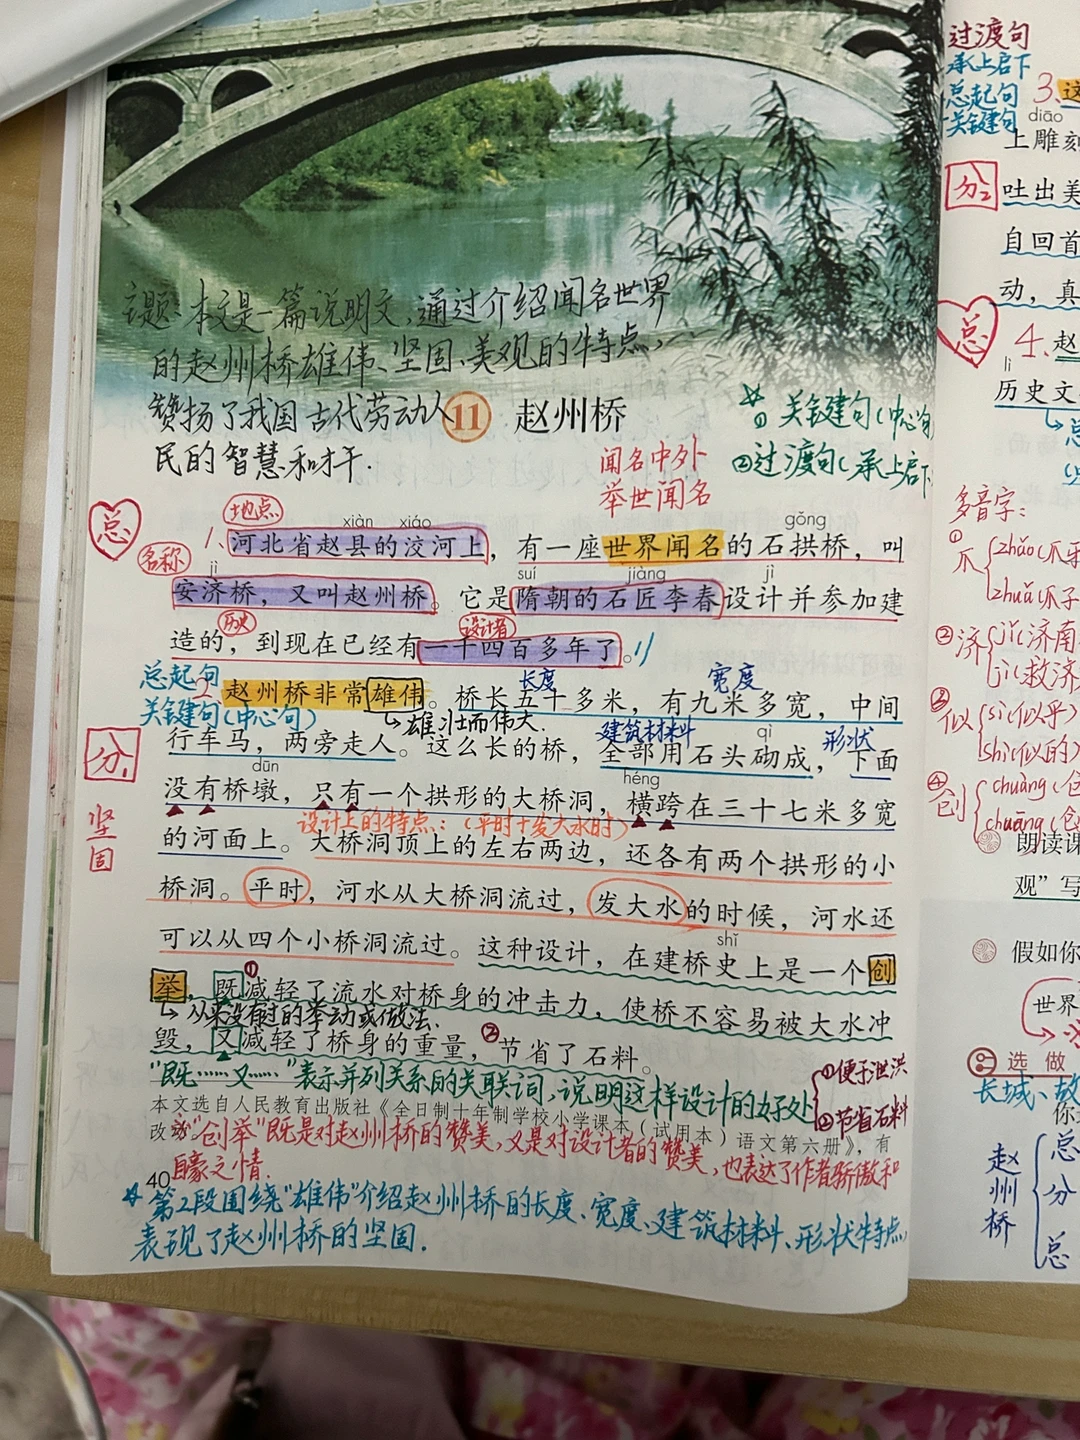 主题:本文是一篇说明文,通过介绍闻名世界
的赵州桥雄伟、坚固、美观的特点,
赞扬了我国古代劳动人
民的智慧和才干.
11 赵州桥
☆① 关键句(中心句
②过渡句(承上启下
闻名中外
举世闻名
总
地点
xiàn xiáo gǒng
1、河北省赵县的洨河上,有一座世界闻名的石拱桥,叫
名称
jì suí jiàng jì
安济桥,又叫赵州桥。它是隋朝的石匠李春设计并参加建
历史 设计者
造的,到现在已经有一千四百多年了。//
总起句 长度 宽度
2、赵州桥非常雄伟。桥长五十多米,有九米多宽,中间
关键句(中心句) 雄壮而伟大. 建筑材料 qì 形状
分1
行车马,两旁走人。这么长的桥,全部用石头砌成,下面
dūn héng
没有桥墩,只有一个拱形的大桥洞,横跨在三十七米多宽
坚固
设计上的特点:(平时+发大水时)
的河面上。大桥洞顶上的左右两边,还各有两个拱形的小
桥洞。平时,河水从大桥洞流过,发大水的时候,河水还
shǐ
可以从四个小桥洞流过。这种设计,在建桥史上是一个创
①
举,既减轻了流水对桥身的冲击力,使桥不容易被大水冲
从来没有过的举动或做法.
②
毁,又减轻了桥身的重量,节省了石料。
“既……又……”表示并列关系的关联词,说明这样设计的好处
①便于泄洪
②节省石料
本文选自人民教育出版社《全日制十年制学校小学课本(试用本)语文第六册》,有
改动。
“创举”既是对赵州桥的赞美,又是对设计者的赞美,也表达了作者骄傲和
自豪之情.
40
☆第2段围绕“雄伟”介绍赵州桥的长度、宽度、建筑材料、形状特点,
表现了赵州桥的坚固.
过渡句
承上启下
总起句
关键句
3、这
diāo
上雕刻
分2
吐出美
自回首
动,真
总
4、赵
lì
历史文
多音字:
①爪 zhǎo(爪牙
zhuǎ(爪子
②济 jǐ(济南
jì(救济
③似 sì(似乎)
shì(似的)
④创 chuàng(
chuāng(
朗读课
观”写
假如你
世界
选做
长城、故
你
赵州桥
总
分
总